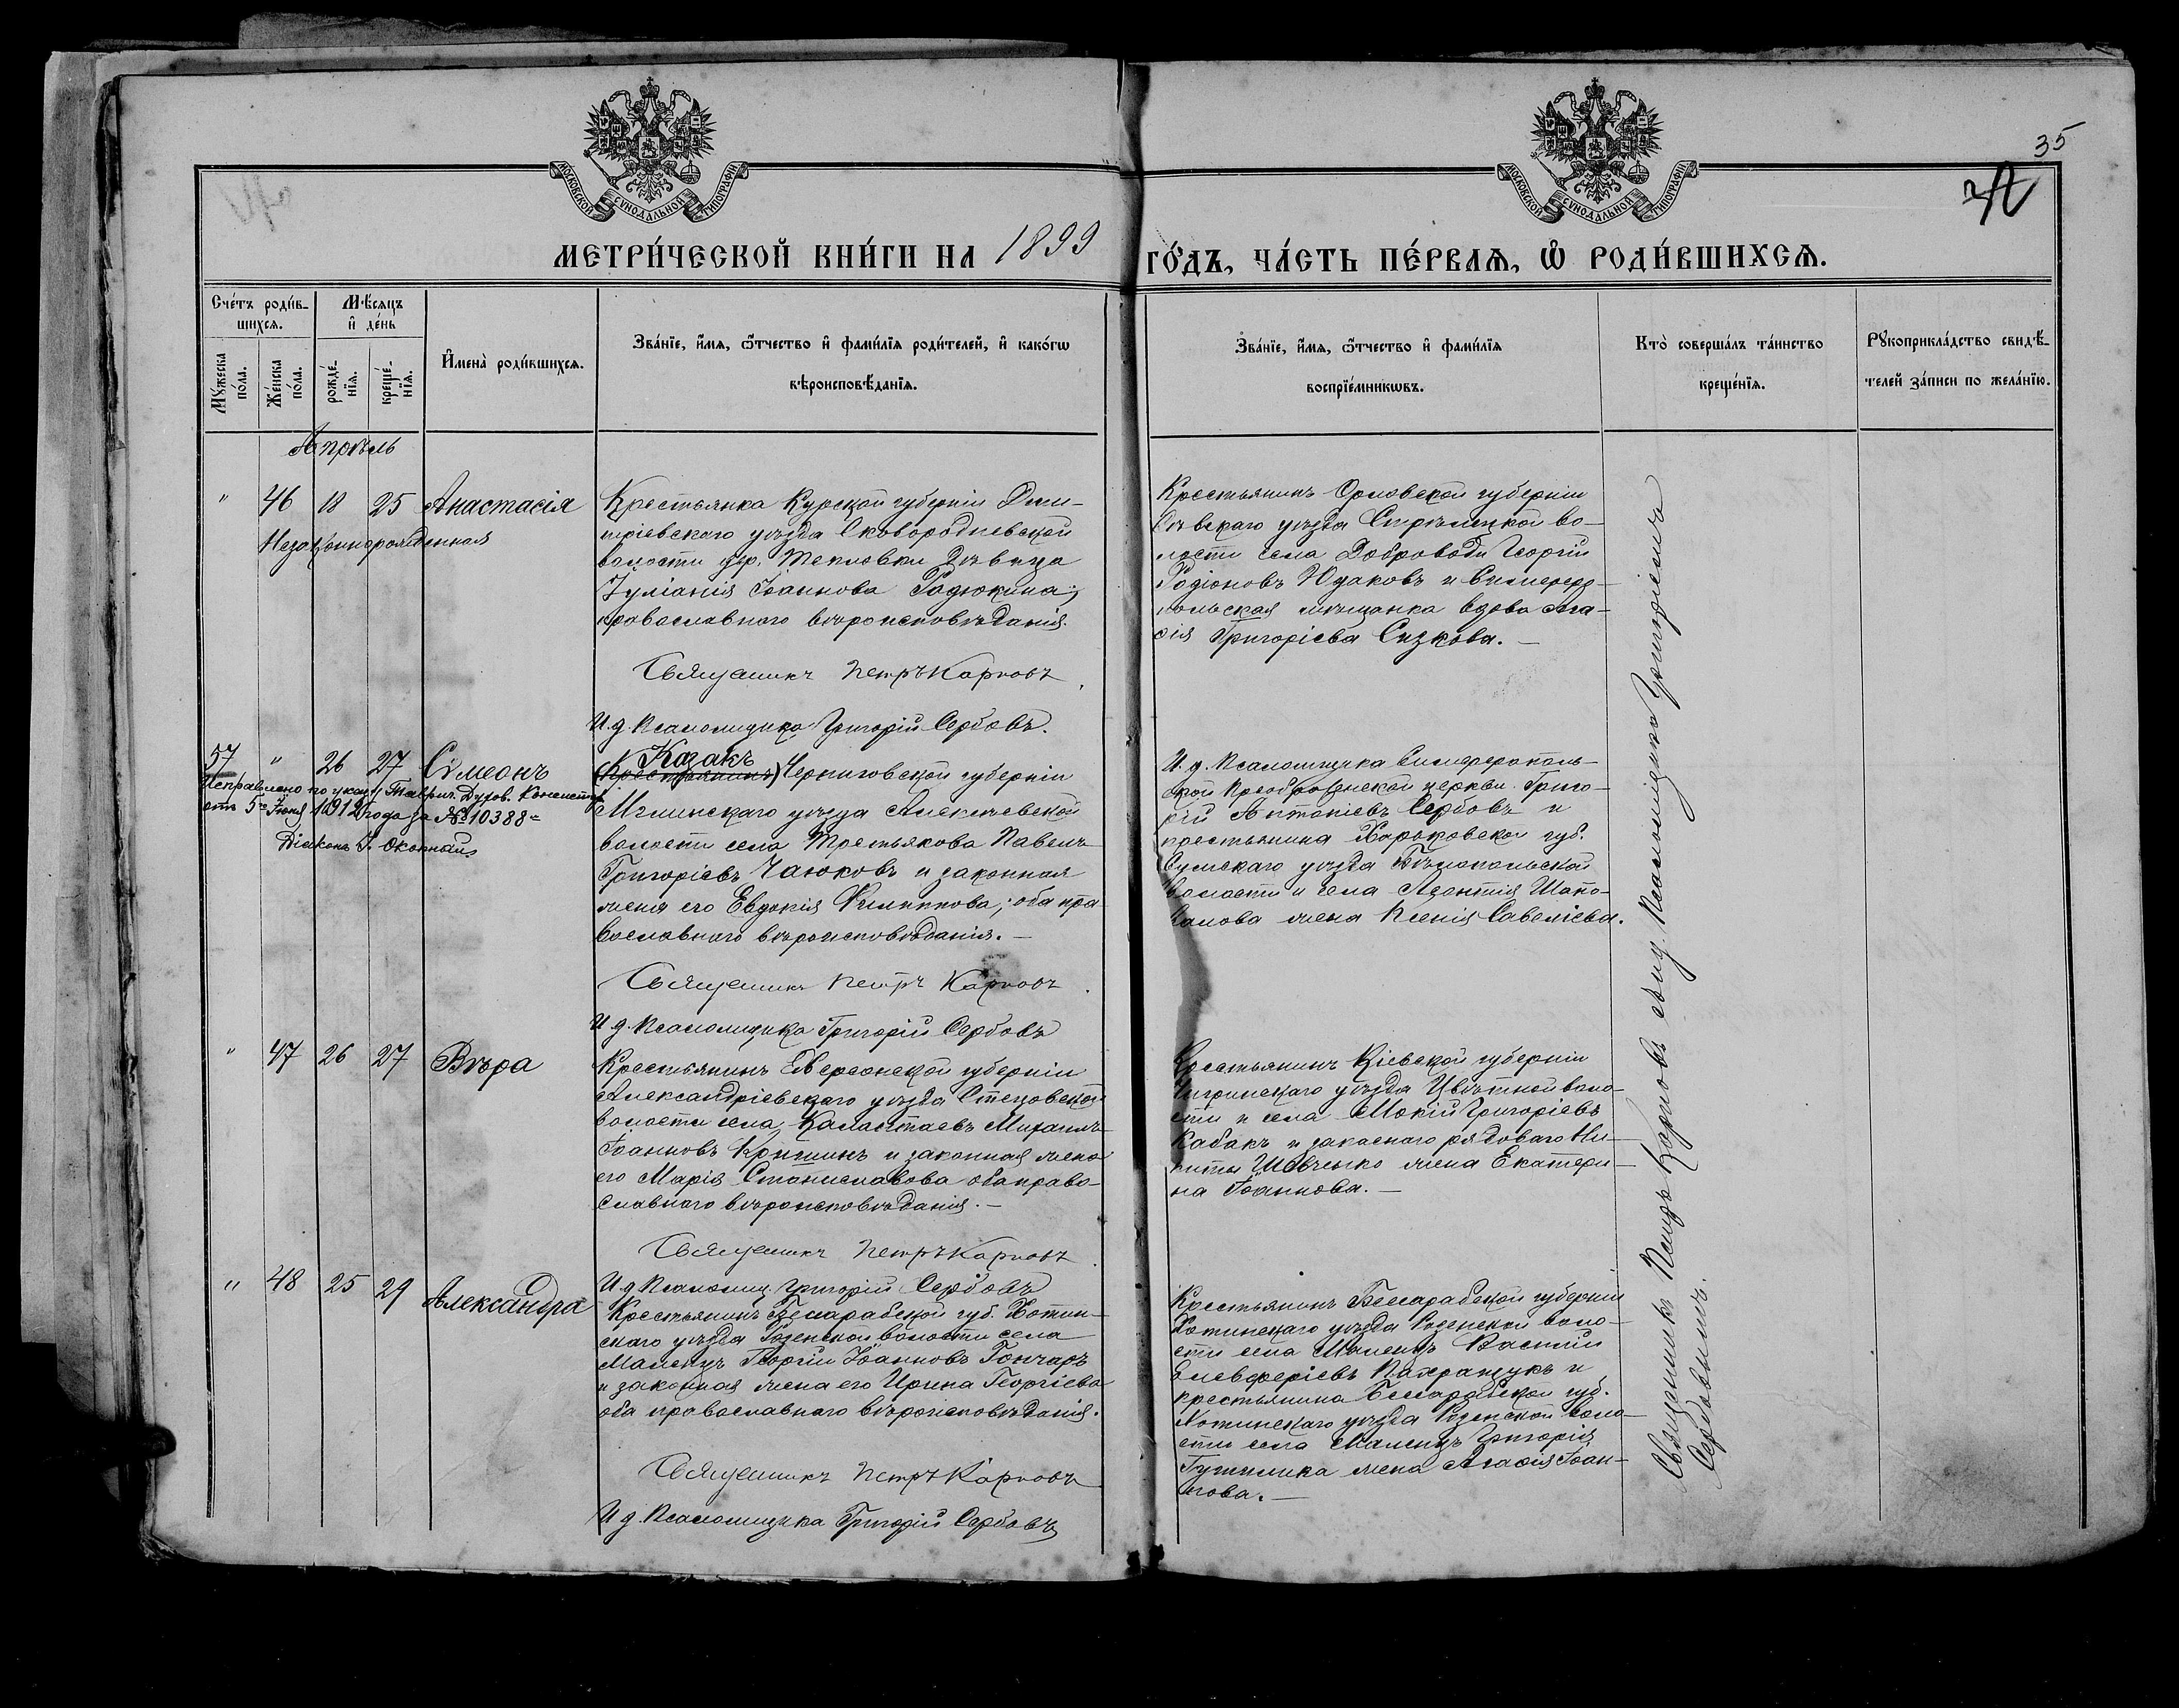 35
МОСКОВСКОЙ СѴНОДАЛЬНОЙ ТИПОГРАФІИ
МОСКОВСКОЙ СѴНОДАЛЬНОЙ ТИПОГРАФІИ
МЕТРИ́ЧЕСКОЙ КНИ́ГИ НА 1899 ГО́ДЪ, ЧА́СТЬ ПЕ́РВАѦ, Ѡ҆ РОДИ́ВШИХСѦ.
Сче́тъ роди́в-
шихсѧ.
Мѣ́сѧцъ
и҆ де́нь
Мꙋ́жеска
по́ла.
Же́нска
по́ла.
рожде́-
нїѧ.
креще́-
нїѧ.
И҆мена̀ роди́вшихсѧ.
Зва́нїе, и҆́мѧ, ѻ҆́тчество и҆ фами́лїѧ роди́телей, и҆ како́гѡ
вѣроисповѣ́данїѧ.
Зва́нїе, и҆́мѧ, ѻ҆́тчество и҆ фами́лїѧ
воспрїе́мникѡвъ.
Кто̀ соверша́лъ та́инство
креще́нїѧ.
Рꙋкоприкла́дство свидѣ́-
телей за́писи по жела́нїю.
Апрѣль
" 46 18 25 Анастасія
Незаконнорожденная
Крестьянка Курской губерніи Дми-
тріевскаго уѣзда Сковородневской
волости дер. Тепловки Дѣвица
Іуліанія Іоаннова Радюкина,
православнаго вѣроисповѣданія.
Священникъ Петръ Карповъ
И. д. Псаломщика Григорій Сербовъ.
Крестьянинъ Орловской губерніи
Сѣвскаго уѣзда Стрѣлецкой во-
лости села Доброводи Георгій
Родіоновъ Юдаковъ и Симферо-
польская мѣщанка вдова Ага-
фія Григоріева Сизкова.
57 " 26 27 Сѵмеонъ
Исправлено по указу Таврич. Духов. Консисторіи
отъ 5го Іюня 1912 года за № 10388
Діаконъ
Казакъ
(Крестьянинъ) Черниговской губерніи
Мглинскаго уѣзда Алексеевской
волости села Третьякова Павелъ
Григоріевъ Чаюковъ и законная
жена его Евдокія Филиппова; оба пра
вославнаго вѣроисповѣданія.
Священникъ Петръ Карповъ
И. д. Псаломщика Григорій Сербовъ
И. д. Псаломщика Симферополь-
ской Преображенской церкви Григо-
рій Антоніевъ Сербовъ и
крестьянина Харьковской губ.
Сумскаго уѣзда Бѣлопольской
волости и села Леонтія Шапо-
валова жена Ксенія Савеліева.
" 47 26 27 Вѣра
Крестьянинъ Херсонской губерніи
Александріевскаго уѣзда Стецовской
волости села Калантаевъ Михаилъ
Іоанновъ Кришинъ и законная жена
его Марія Станиславова оба право-
славнаго вѣроисповѣданія.
Священникъ Петръ Карповъ
И. д. Псаломщ. Григорій Сербовъ
Крестьянинъ Кіевской губерніи
Чигринскаго уѣзда Цвѣтной воло-
сти и села Мокій Григоріевъ
Кабакъ и запаснаго рядоваго Ни-
киты Шевченко жена Екатери-
на Іоаннова.
" 48 25 29 Александра
Крестьянинъ Бессарабской губ. Хотин-
скаго уѣзда Романской волости села
Маленцъ Георгій Іоанновъ Гончаръ
и законная жена его Ирина Георгіева
оба православнаго вѣроисповѣданія.
Священникъ Петръ Карповъ
И. д. Псаломщика Григорій Сербовъ
Крестьянинъ Бессарабской губерніи
Хотинскаго уѣзда воло-
сти села Маленцъ Василій
Елевферіевъ и
крестьянина Бессарабской губ.
Хотинскаго уѣзда воло-
сти села Маленцъ Григорія
жена Агафія Іоан-
нова.
Священникъ Петръ Карповъ съ и. д. Псаломщика Григоріемъ
Сербовымъ.